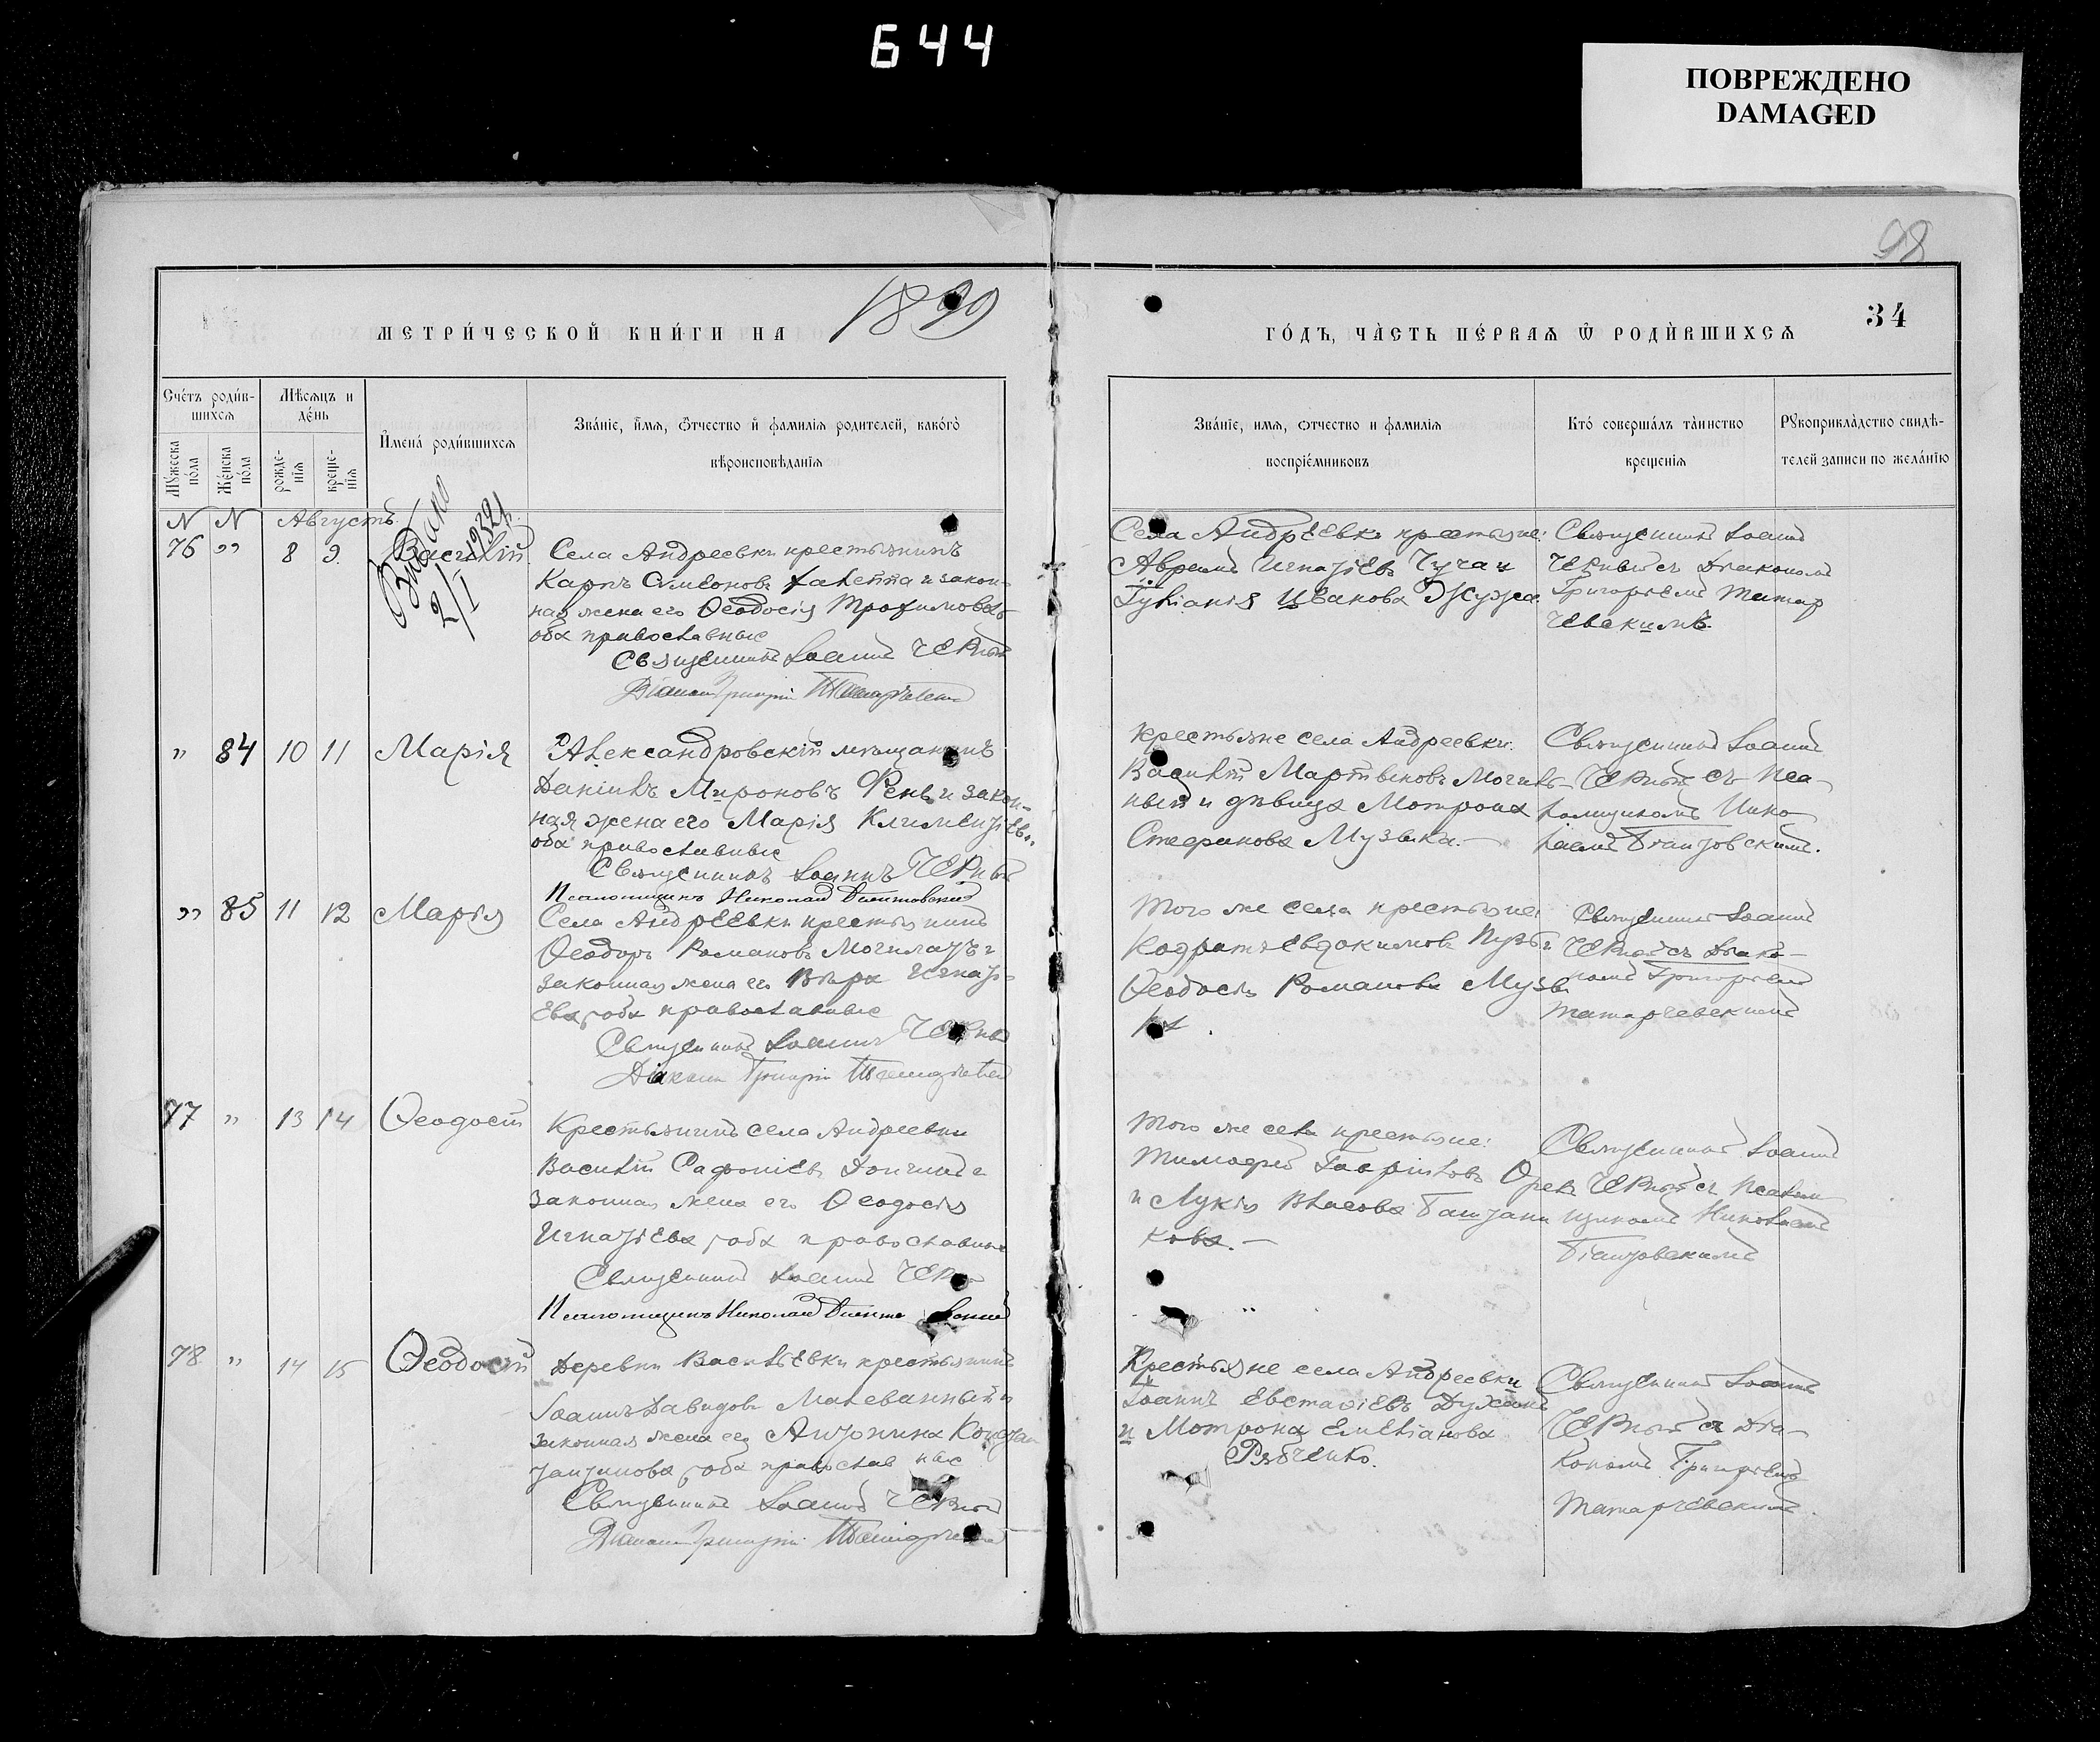 644
ПОВРЕЖДЕНО
DAMAGED
98
МЕТРИ́ЧЕСКОЙ КНИ́ГИ НА 1899
ГО́ДЪ, ЧА̀СТЬ ПЕ́РВАѦ Ѿ РОДЍВШИХСѦ
34
Сче́тъ роди́в-
шихсѧ
Мѣ́сѧцъ и
де́нь
Мꙋ́жеска по́ла
Же́нска по́ла
рожде́-
нїѧ
креще́-
нїѧ
И҆мена́ роди́вшихсѧ
Зва́нїе, и҆́мѧ, ѻ҆́тчество и҆ фамилїѧ родителей, како́гѡ
вѣроисповѣ́данїѧ
Зва́нїе, имѧ, ѻтчество и фамилїѧ
воспрїе́мниковъ
Кто́ соверша́лъ та̀инство
креще́нїѧ
Рꙋкоприкла́дство свидѣ́-
телей записи по жела́нїю
N N Августъ
Видано
2/I 1932
76 " 8 9. Василій
Села Андреевки крестьянинъ
Карпъ Симеоновъ и закон-
ная жена его Ѳеодосія Трофимова
оба православные
Священникъ Іоаннъ Черный
Діаконъ Григорій Татарчевскій
Села Андреевки крестьяне:
Аврамъ Игнатіевъ Чучак
Іуліанія Иванова Жужа
Священникъ Іоаннъ
Черный съ Діакономъ
Григоріемъ Татар
чевскимъ
" 84 10 11 Марія
Александровскій мѣщанинъ
Даніилъ Мироновъ Рень и закон-
ная жена его Марія Климентіев.
оба православные
Священникъ Іоаннъ Черный
Псаломщикъ Николай
Крестьяне села Андреевки:
Василій Мартиновъ Могиль-
ный и дѣвица Мотрона
Стефанова Музыка.
Священникъ Іоаннъ
Черный съ Пса-
ломщикомъ Нико
лаемъ
" 85 11 12 Марія
Села Андреевки крестьянинъ
Ѳеодоръ Романовъ Могилатъ и
законная жена его Вѣра Игнаті-
ева, оба православные
Священникъ Іоаннъ Черный
Діаконъ Григорій Татарчевскій
Того же села крестьяне:
Кодратъ Евдокимовъ
Ѳеодосія Романова Музы
ка.
Священникъ Іоаннъ
Черный съ Діако-
номъ Григоріемъ
Татарчевскимъ
77 " 13 14 Ѳеодосій
Крестьянинъ села Андреевки
Василій Сафоніевъ и
законная жена его Ѳеодосія
Игнатіева, оба православные
Священникъ Іоаннъ Черный
Псаломщикъ Николай
Того же села крестьяне:
Тимофей Гавріиловъ Орелъ
и Лукія Власова Баштани
кова.
Священникъ Іоаннъ
Черный съ Псалом
щикомъ Николаемъ
78 " 14 15 Ѳеодосій
Деревни Васильевки крестьянинъ
Іоаннъ Давидовъ Малеванный и
законная жена его Антонина Конста
нтинова, оба православные
Священникъ Іоаннъ Черный
Діаконъ Григорій Татарчевскій
Крестьяне села Андреевки
Іоаннъ Евстаѳіевъ
и Мотрона Емеліанова
Рябченко.
Священникъ Іоаннъ
Черный съ Діа-
кономъ Григоріемъ
Татарчевскимъ